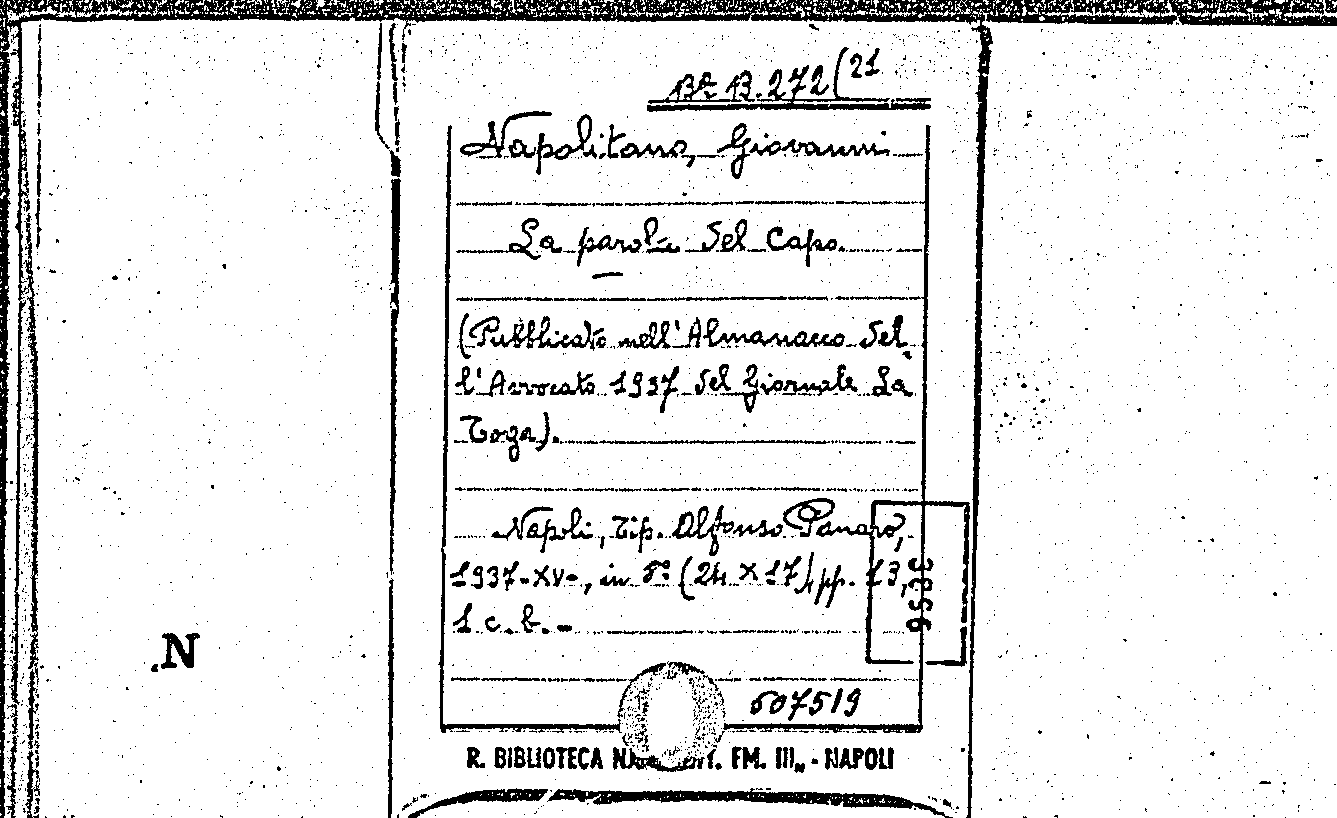 Bª B. 272(21
Napolitano, Giovanni
La parola del Capo.
(Pubblicato nell'Almanacco del
l'Avvocato 1937 del Giornale La
Toga).
Napoli, Tip. Alfonso Panaro,
1937-XV-, in 8º (24 X 17), pp. 13,
1 c. b. -
3356
.N
607519
R. BIBLIOTECA FM. III - NAPOLI